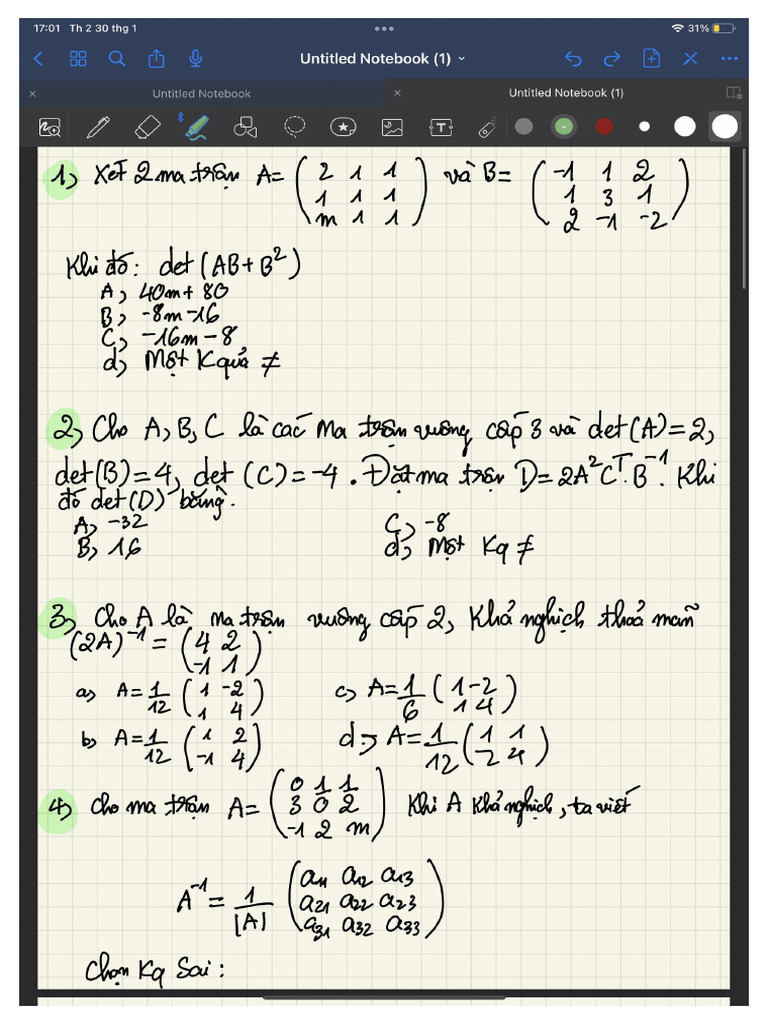 17:01 Th 2 30 thg 1
31%
Untitled Notebook (1)
Untitled Notebook
Untitled Notebook (1)
1, Xét 2 ma trận A= ( 2 1 1 và B= ( -1 1 2
1 1 1 1 3 1
m 1 1 ) 2 -1 -2 )
Khi đó: det (AB + B²)
A, 40m + 80
B, -8m -16
C, -16m - 8
d, Một Kquả ≠
2, Cho A, B, C là các Ma trận vuông cấp 3 và det(A) = 2,
det(B) = 4, det (C) = -4. Đặt ma trận D = 2A²Cᵀ.B⁻¹. Khi
đó det(D) bằng.
A, -32 C, -8
B, 16 d, Một Kq ≠
3, Cho A là ma trận vuông cấp 2, Khả nghịch thoả mãn
(2A)⁻¹ = ( 4 2
-1 1 )
a, A = 1/12 ( 1 -2 c, A = 1/6 ( 1 -2
1 4 ) 1 4 )
b, A = 1/12 ( 1 2 d, A = 1/12 ( 1 1
-1 4 ) -2 4 )
4, Cho ma trận A= ( 0 1 1 Khi A Khả nghịch, ta viết
3 0 2
-1 2 m )
A⁻¹ = 1/|A| ( a11 a12 a13
a21 a22 a23
a31 a32 a33 )
Chọn Kq Sai :